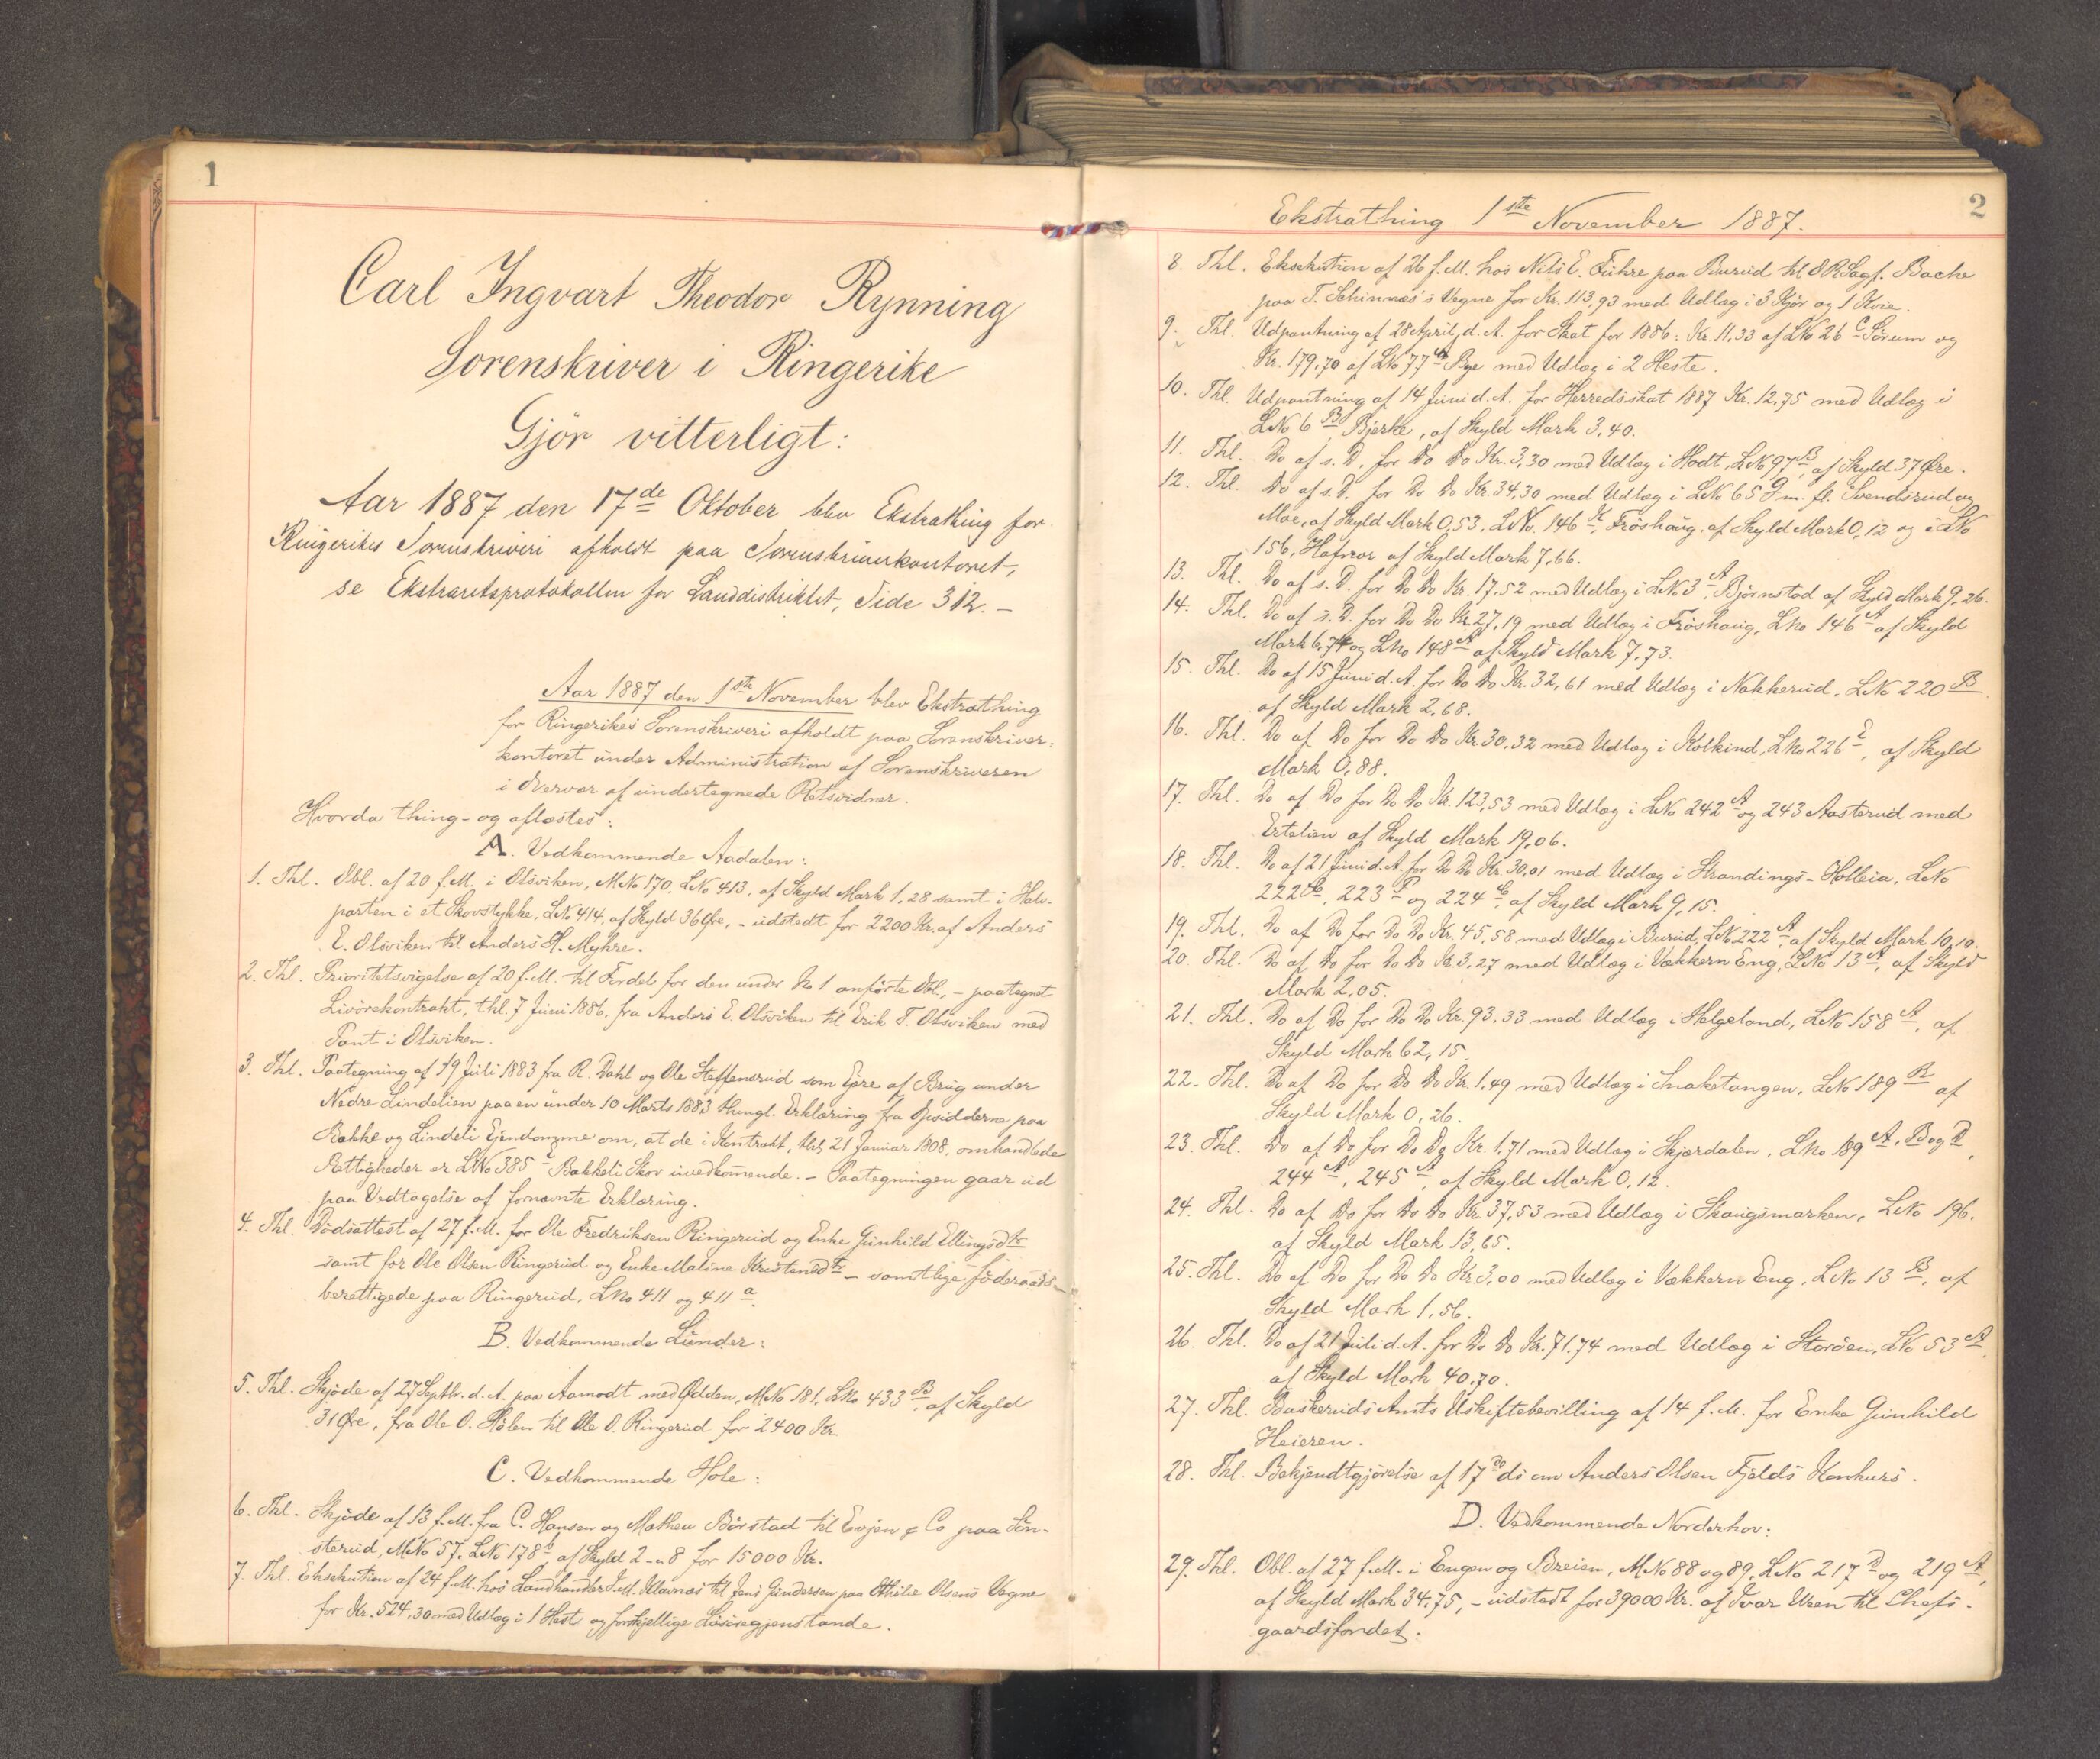 1
Carl Ingvart Theodor Rynning
Sorenskriver i Ringerike
Gjör vitterligt:
Aar 1887 den 17de Oktober blev Ekstrathing for
Ringerikes Sorenskriveri afholdt paa Sorenskriverkontoret,
se Ekstraretsprotokollen for Landdistriktet, Side 312. –
Aar 1887 den 1ste November blev Ekstrathing
for Ringerikes Sorenskriveri afholdt paa Sorenskriver-
kontoret under Administration af Sorenskriveren
i Overvær af undertegnede Retsvidner.
Hvorda thing- og aflæstes:
A. Vedkommende Aadalen:
1. Thl. Obl. af 20 f.M. i Olsviken, MNo 170, LNo 413, af Skyld Mark 1,28 samt i Halv-
parten i et Skovstykke, LNo 414, af Skyld 36 Øre, – udstedt for 2200 Kr. af Anders
E. Olsviken til Anders H. Myhre.
2. Thl. Prioritetsvigelse af 20 f.M. til Fordel for den under No 1 anførte Obl., – paategnet
Livörekontrakt, thl. 7 Juni 1886, fra Anders E. Olsviken til Erik T. Olsviken med
Pant i Olsviken.
3. Thl. Paategning af 19 Juli 1883 fra R. Dahl og Ole Steffensrud som Ejere af Brug under
Nedre Lindelien paa en under 10 Marts 1883 thingl. Erklæring fra Opsidderne paa
Bakke og Lindeli Ejendomme om, at de i Kontrakt, thl. 21 Januar 1808, omhandlede
Rettigheder er LNo 385 E Bakkeli Skov uvedkommende. – Paategningen gaar ud
paa Vedtagelse af fornævnte Erklæring.
4. Thl. Dödsattest af 27 f.M. for Ole Fredriksen Ringerud og Enke Gunhild Ellingsdtr
samt for Ole Olsen Ringerud og Enke Maline Kristensdtr – samtlige föderaads-
berettigede paa Ringerud, LNo 411 og 411 a.
B. Vedkommende Lunder:
5. Thl. Skjöde af 27 Septbr. d.A. paa Aamodt med Odden, MNo 181, LNo 433 B, af Skyld
31 Øre, fra Ole O. Hölen til Ole O. Ringerud for 2400 Kr.
C. Vedkommende Hole:
6. Thl. Skjöde af 13 f.M. fra C. Hansen og Mathea Börstad til Evjen & Co paa Sön-
sterud, MNo 57, LNo 178 b, af Skyld 2 - " 8 for 15000 Kr.
7. Thl. Eksekution af 24 f.M. hos Landhandler J.M. Klavnæs til Jens Gundersen paa Othilie Olsens Vegne
for Kr. 524,30 med Udlæg i 1 Hest og forskjellige Lösöregjenstande.
2
Ekstrathing 1ste November 1887.
8. Thl. Eksekution af 26 f.M. hos Nils E. Fuhre paa Burud til ORSagf. Bache
paa T. Schinnæs's Vegne for Kr. 113,93 med Udlæg i 3 Kjör og 1 Kvie.
9. Thl. Udpantning af 28 April d.A. for Skat for 1886: Kr. 11,33 af LNo 26 C Sörum og
Kr. 179,70 af LNo 77 a Bye med Udlæg i 2 Heste.
10. Thl. Udpantning af 14 Juni d.A. for Herredsskat 1887 Kr. 12,75 med Udlæg i
LNo 6 B Bjerke, af Skyld Mark 3,40.
11. Thl. Do af s.D. for Do Do Kr. 3,30 med Udlæg i Modt, LNo 97 B, af Skyld 37 Øre.
12. Thl. Do af s.D. for Do Do Kr. 34,30 med Udlæg i LNo 65 g m.fl. Svendsrud og
Moe, af Skyld Mark 0,53, LNo 146 K, Fröshaug, af Skyld Mark 0,12 og i LNo
156, Hafnor af Skyld Mark 7,66.
13. Thl. Do af s.D. for Do Do Kr. 17,52 med Udlæg i LNo 3 A, Björnstad af Skyld Mark 9,26.
14. Thl. Do af s.D. for Do Do Kr. 27,19 med Udlæg i Fröshaug, LNo 146 A af Skyld
Mark 6,74 og LNo 148 A af Skyld Mark 7,73.
15. Thl. Do af 15 Juni d.A. for Do Do Kr. 32,61 med Udlæg i Nakkerud, LNo 220 B
af Skyld Mark 2,68.
16. Thl. Do af Do for Do Do Kr. 30,32 med Udlæg i Kolkind, LNo 226 E, af Skyld
Mark 0,88.
17. Thl. Do af Do for Do Do Kr. 123,53 med Udlæg i LNo 242 A og 243 Aasterud med
Ertelien af Skyld Mark 19,06.
18. Thl. Do af 21 Juni d.A. for Do Do Kr. 30,01 med Udlæg i Strandings-Holleia, LNo
222, 223 P og 224 C, af Skyld Mark 9,15.
19. Thl. Do af Do for Do Do Kr. 45,58 med Udlæg i Burud, LNo 222 A, af Skyld Mark 10,10.
20. Thl. Do af Do for Do Do Kr. 3,27 med Udlæg i Vækkern Eng, LNo 13 A, af Skyld
Mark 2,05.
21. Thl. Do af Do for Do Do Kr. 93,33 med Udlæg i Helgeland, LNo 158 A, af
Skyld Mark 62,15.
22. Thl. Do af Do for Do Do Kr. 1,49 med Udlæg i Snaketangen, LNo 189 af
Skyld Mark 0,26.
23. Thl. Do af Do for Do Do Kr. 1,71 med Udlæg i Skjærdalen, LNo 189 A, B og D,
244 A, 245 A, af Skyld Mark 0,12.
24. Thl. Do af Do for Do Do Kr. 37,53 med Udlæg i Skaugsmarken, LNo 196.
af Skyld Mark 13,65.
25. Thl. Do af Do for Do Do Kr. 3,00 med Udlæg i Vækkern Eng, LNo 13 B, af
Skyld Mark 1,56.
26. Thl. Do af 21 Juli d.A. for Do Do Kr. 71,74 med Udlæg i Storöen, LNo 53 A,
af Skyld Mark 40,70.
27. Thl. Buskeruds Amts Uskiftebevilling af 14 f.M. for Enke Gunhild
Heieren.
28. Thl. Bekjendtgjörelse af 17 de ds om Anders Olsen Fjelds Konkurs.
D. Vedkommende Norderhov:
29. Thl. Obl. af 27 f.M. i Engen og Breien, MNo 88 og 89, LNo 217 D og 219 A,
af Skyld Mark 34,75, – udstedt for 39000 Kr. af Ivar Ween til Chefs-
gaardsfondet.